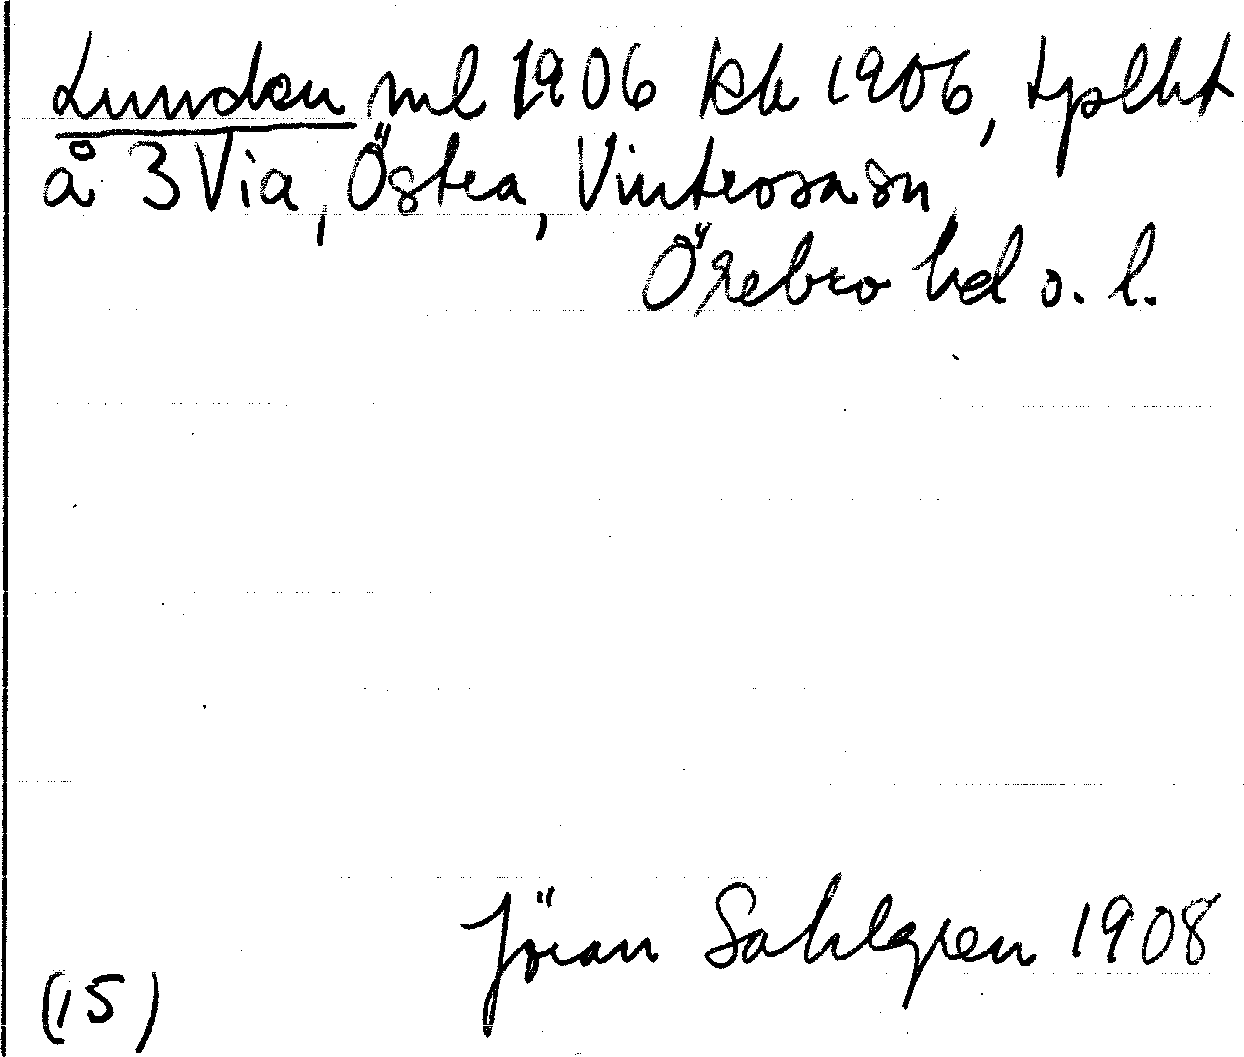 Lunden ml 1906 kb 1906, tplht
å 3 Via, Östra, Vintrosa sn,
Örebro hd o. l.
Jöran Sahlgren 1908
(15)